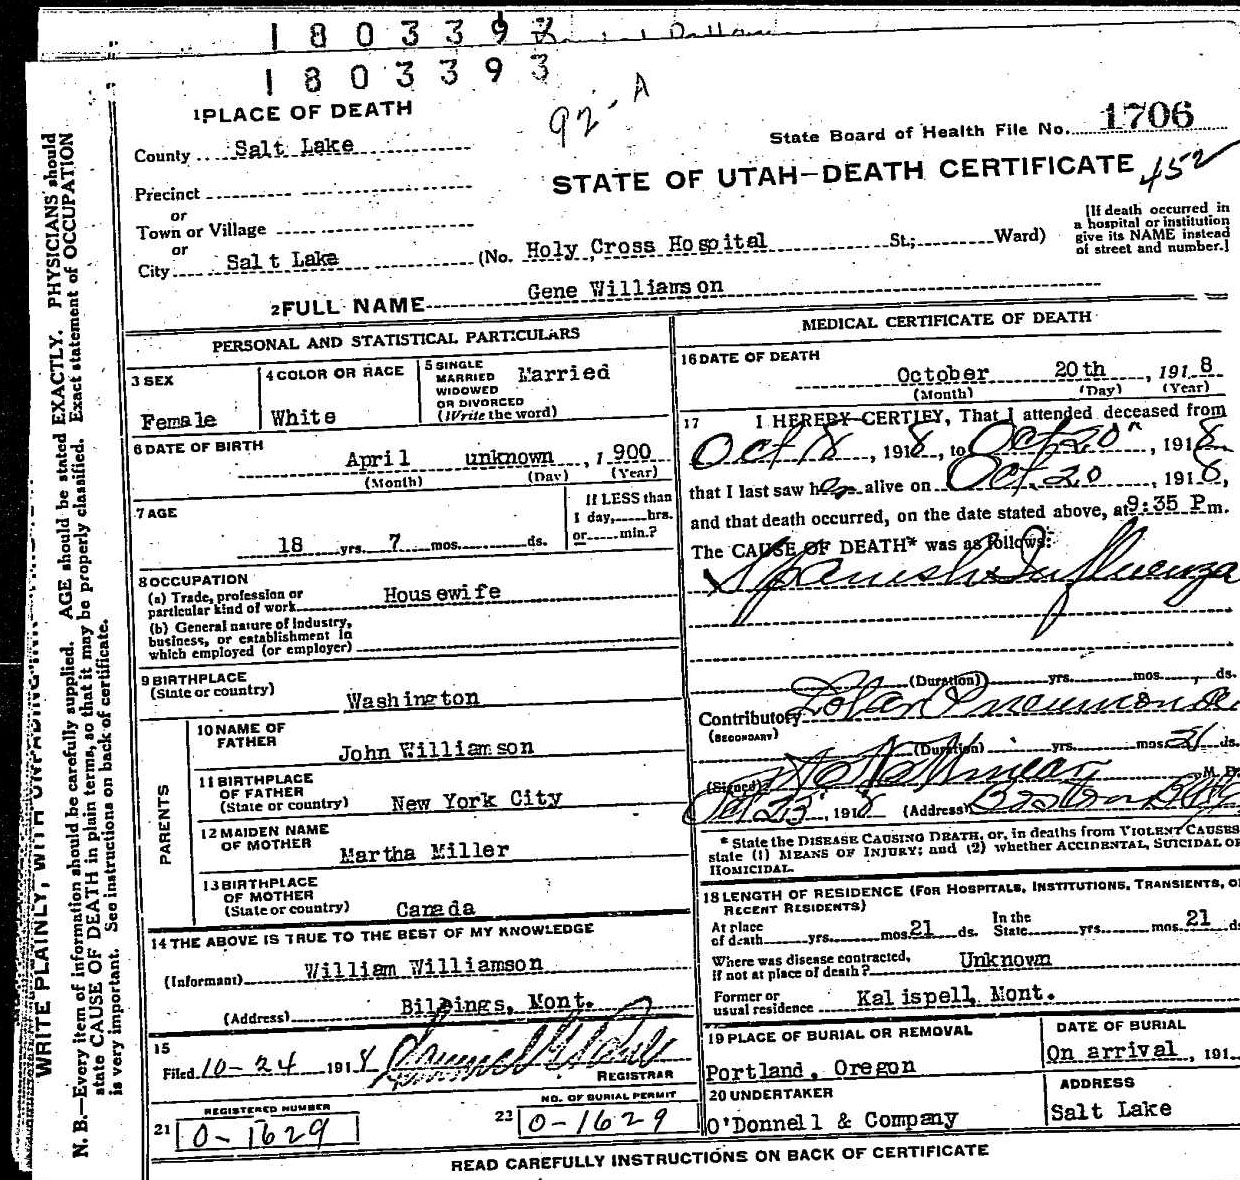 1803393
1803393
92-A
1 PLACE OF DEATH
State Board of Health File No. 1706
County Salt Lake
STATE OF UTAH-DEATH CERTIFICATE 452
Precinct
or
Town or Village
or
City Salt Lake (No. Holy Cross Hospital St.; Ward)
[If death occurred in
a hospital or institution
give its NAME instead
of street and number.]
2 FULL NAME Gene Williamson
PERSONAL AND STATISTICAL PARTICULARS
3 SEX
Female
4 COLOR OR RACE
White
5 SINGLE
MARRIED
WIDOWED
OR DIVORCED
(Write the word)
Married
6 DATE OF BIRTH
April unknown, 1900
(Month) (Day) (Year)
7 AGE
18 yrs. 7 mos. ds.
If LESS than
1 day, hrs.
or min.?
8 OCCUPATION
(a) Trade, profession or
particular kind of work Housewife
(b) General nature of industry,
business, or establishment in
which employed (or employer)
9 BIRTHPLACE
(State or country) Washington
PARENTS
10 NAME OF
FATHER John Williamson
11 BIRTHPLACE
OF FATHER
(State or country) New York City
12 MAIDEN NAME
OF MOTHER Martha Miller
13 BIRTHPLACE
OF MOTHER
(State or country) Canada
14 THE ABOVE IS TRUE TO THE BEST OF MY KNOWLEDGE
(Informant) William Williamson
(Address) Billings, Mont.
15
Filed 10-24 1918
REGISTRAR
REGISTERED NUMBER
21 0-1629
NO. OF BURIAL PERMIT
22 0-1629
MEDICAL CERTIFICATE OF DEATH
16 DATE OF DEATH
October 20th, 1918
(Month) (Day) (Year)
17 I HEREBY CERTIFY, That I attended deceased from
Oct 18, 1918, to Oct 20", 1918
that I last saw her alive on Oct 20, 1918,
and that death occurred, on the date stated above, at 9:35 Pm.
The CAUSE OF DEATH* was as follows:
Spanish Influenza
(Duration) yrs. mos. ds.
Contributory Lobar Pneumonia
(SECONDARY)
(Duration) yrs. mos. ds.
(Signed) M. D.
Oct 23, 1918 (Address) Boston Bldg
* State the DISEASE CAUSING DEATH, or, in deaths from VIOLENT CAUSES
state (1) MEANS OF INJURY; and (2) whether ACCIDENTAL, SUICIDAL OR
HOMICIDAL.
18 LENGTH OF RESIDENCE (FOR HOSPITALS, INSTITUTIONS, TRANSIENTS, OR
RECENT RESIDENTS)
At place
of death yrs. mos. 21 ds.
In the
State yrs. mos. 21 ds
Where was disease contracted,
if not at place of death? Unknown
Former or
usual residence Kalispell, Mont.
19 PLACE OF BURIAL OR REMOVAL
Portland, Oregon
DATE OF BURIAL
On arrival, 191
20 UNDERTAKER
O'Donnell & Company
ADDRESS
Salt Lake
READ CAREFULLY INSTRUCTIONS ON BACK OF CERTIFICATE
N. B.—Every item of information should be carefully supplied. AGE should be stated EXACTLY. PHYSICIANS should
state CAUSE OF DEATH in plain terms, so that it may be properly classified. Exact statement of OCCUPATION
is very important. See instructions on back of certificate.
WRITE PLAINLY, WITH UNFADING INK